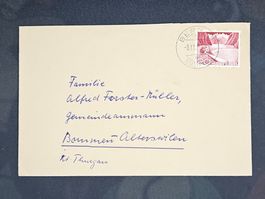 Familie
Alfred Forster-Müller,
Gemeindeammann
Bommen-Alterswilen
Kt. Thurgau